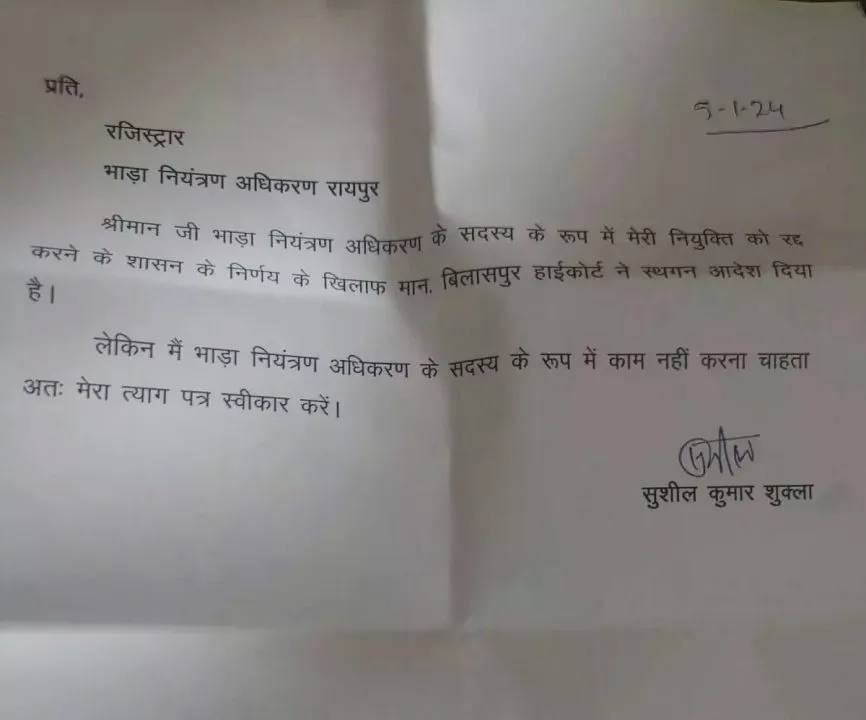 प्रति,
9-1-24
रजिस्ट्रार
भाड़ा नियंत्रण अधिकरण रायपुर
श्रीमान जी भाड़ा नियंत्रण अधिकरण के सदस्य के रूप में मेरी नियुक्ति को रद्द
करने के शासन के निर्णय के खिलाफ मान. बिलासपुर हाईकोर्ट ने स्थगन आदेश दिया
है।
लेकिन मैं भाड़ा नियंत्रण अधिकरण के सदस्य के रूप में काम नहीं करना चाहता
अतः मेरा त्याग पत्र स्वीकार करें।
सुशील कुमार शुक्ला